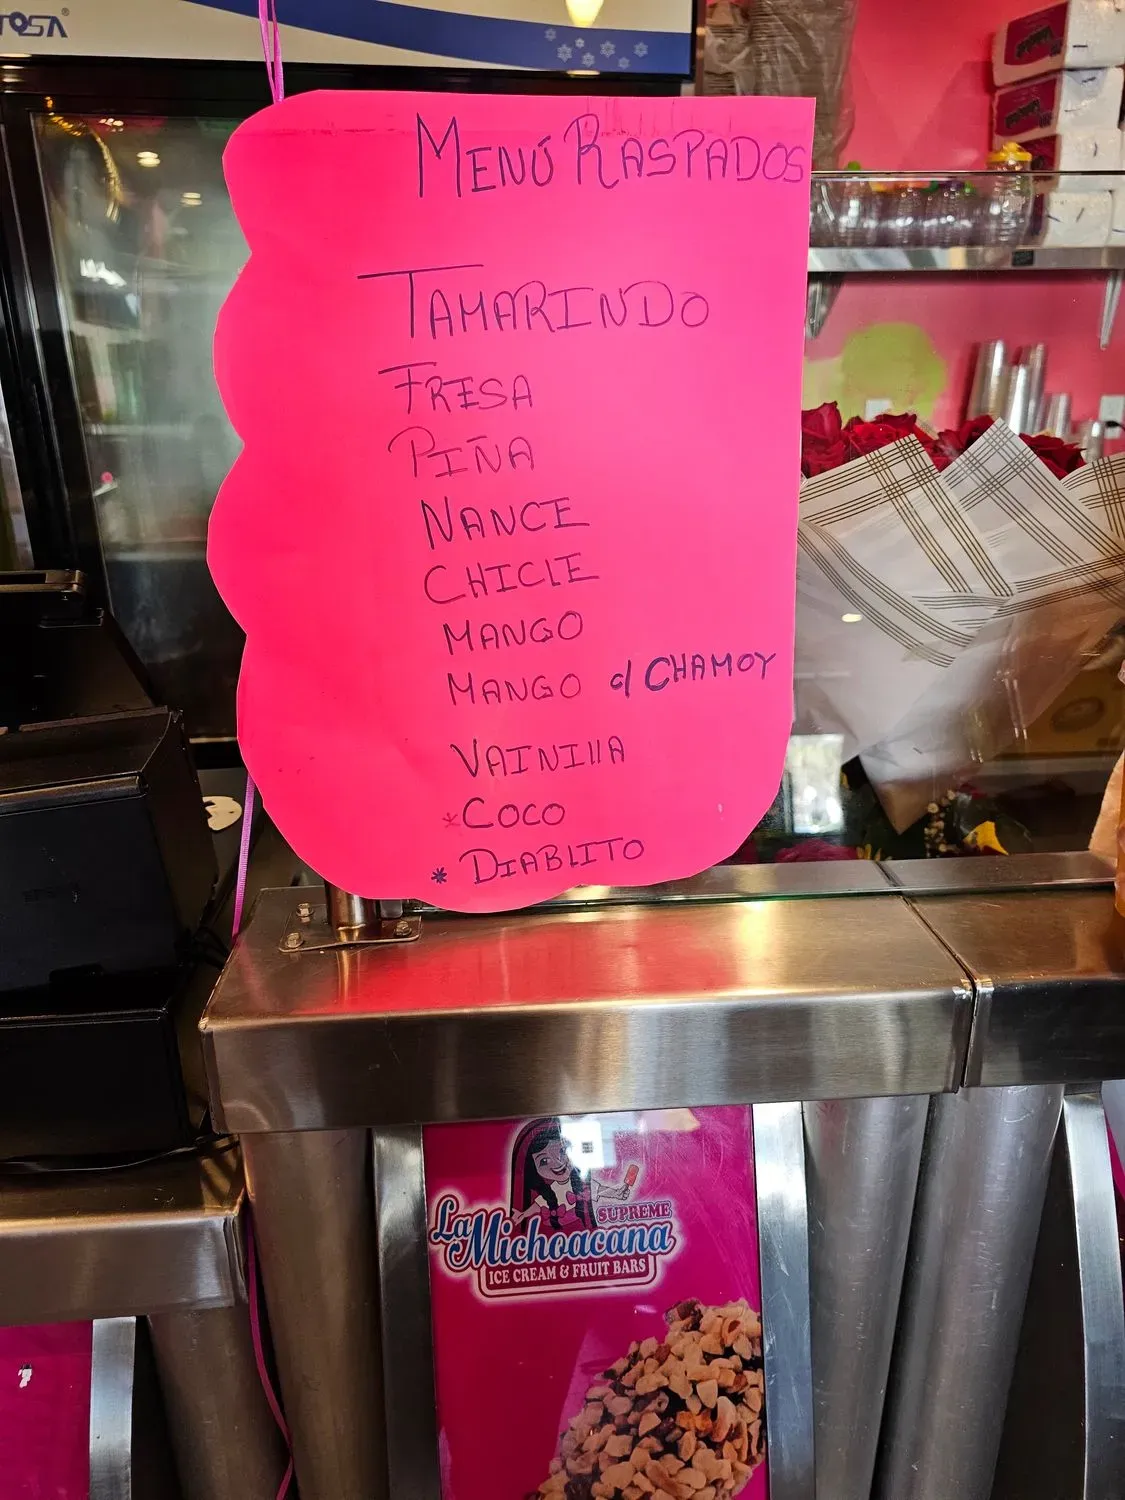 TOSA®
MENÚ RASPADOS
TAMARINDO
FRESA
PIÑA
NANCE
CHICLE
MANGO
MANGO c/ CHAMOY
VAINILLA
*COCO
* DIABLITO
La Michoacana
SUPREME
ICE CREAM & FRUIT BARS